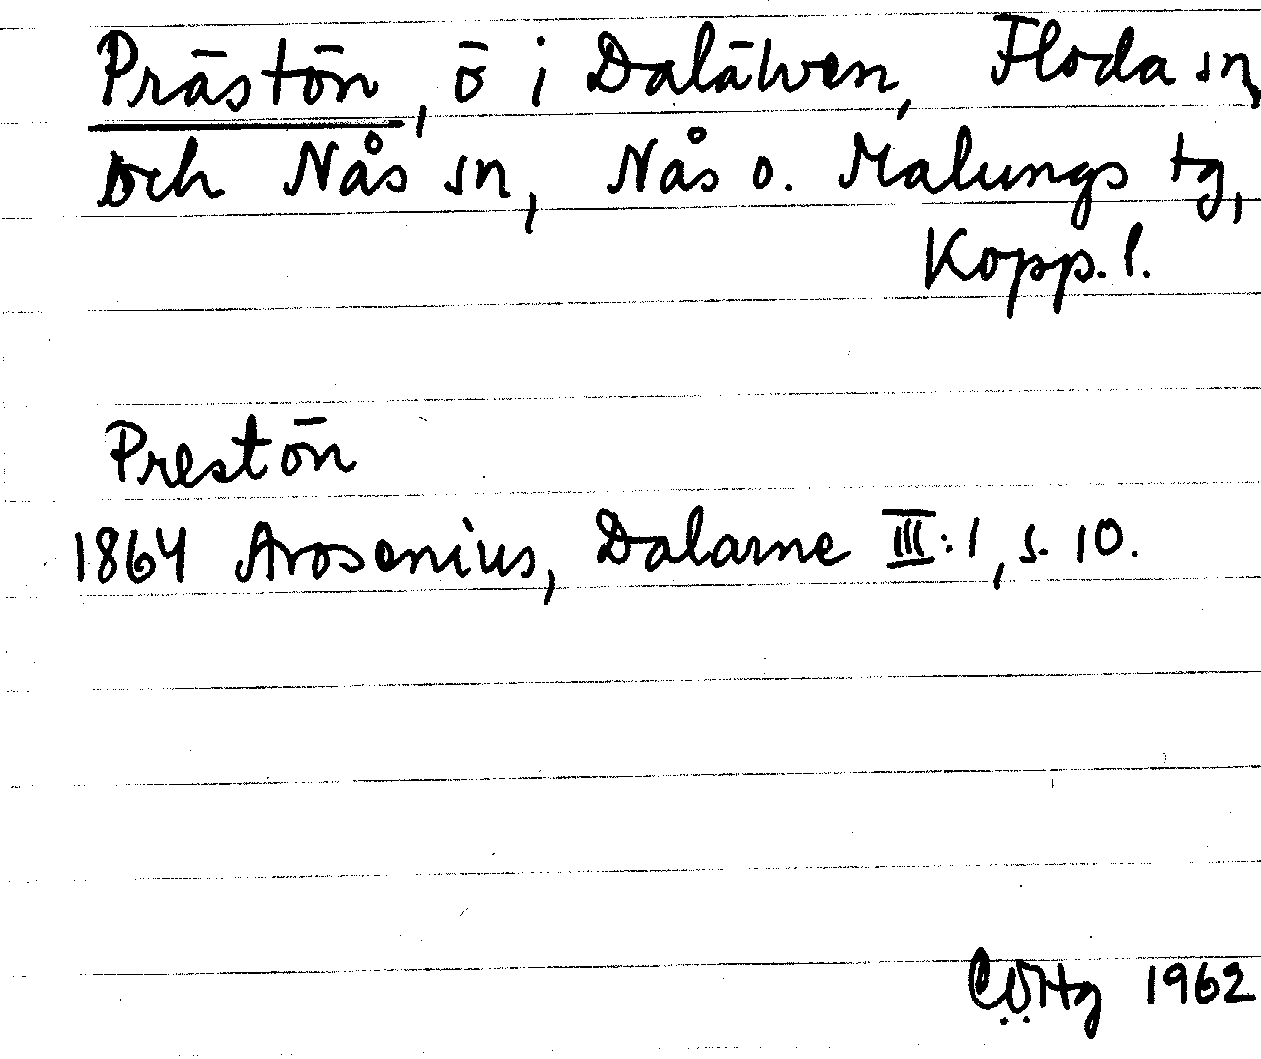 Prästön, ö i Dalälven, Floda sn
och Nås sn, Nås o. Malungs tg,
Kopp. l.
Prestön
1864 Arosenius, Dalarne III:1, s. 10.
1962